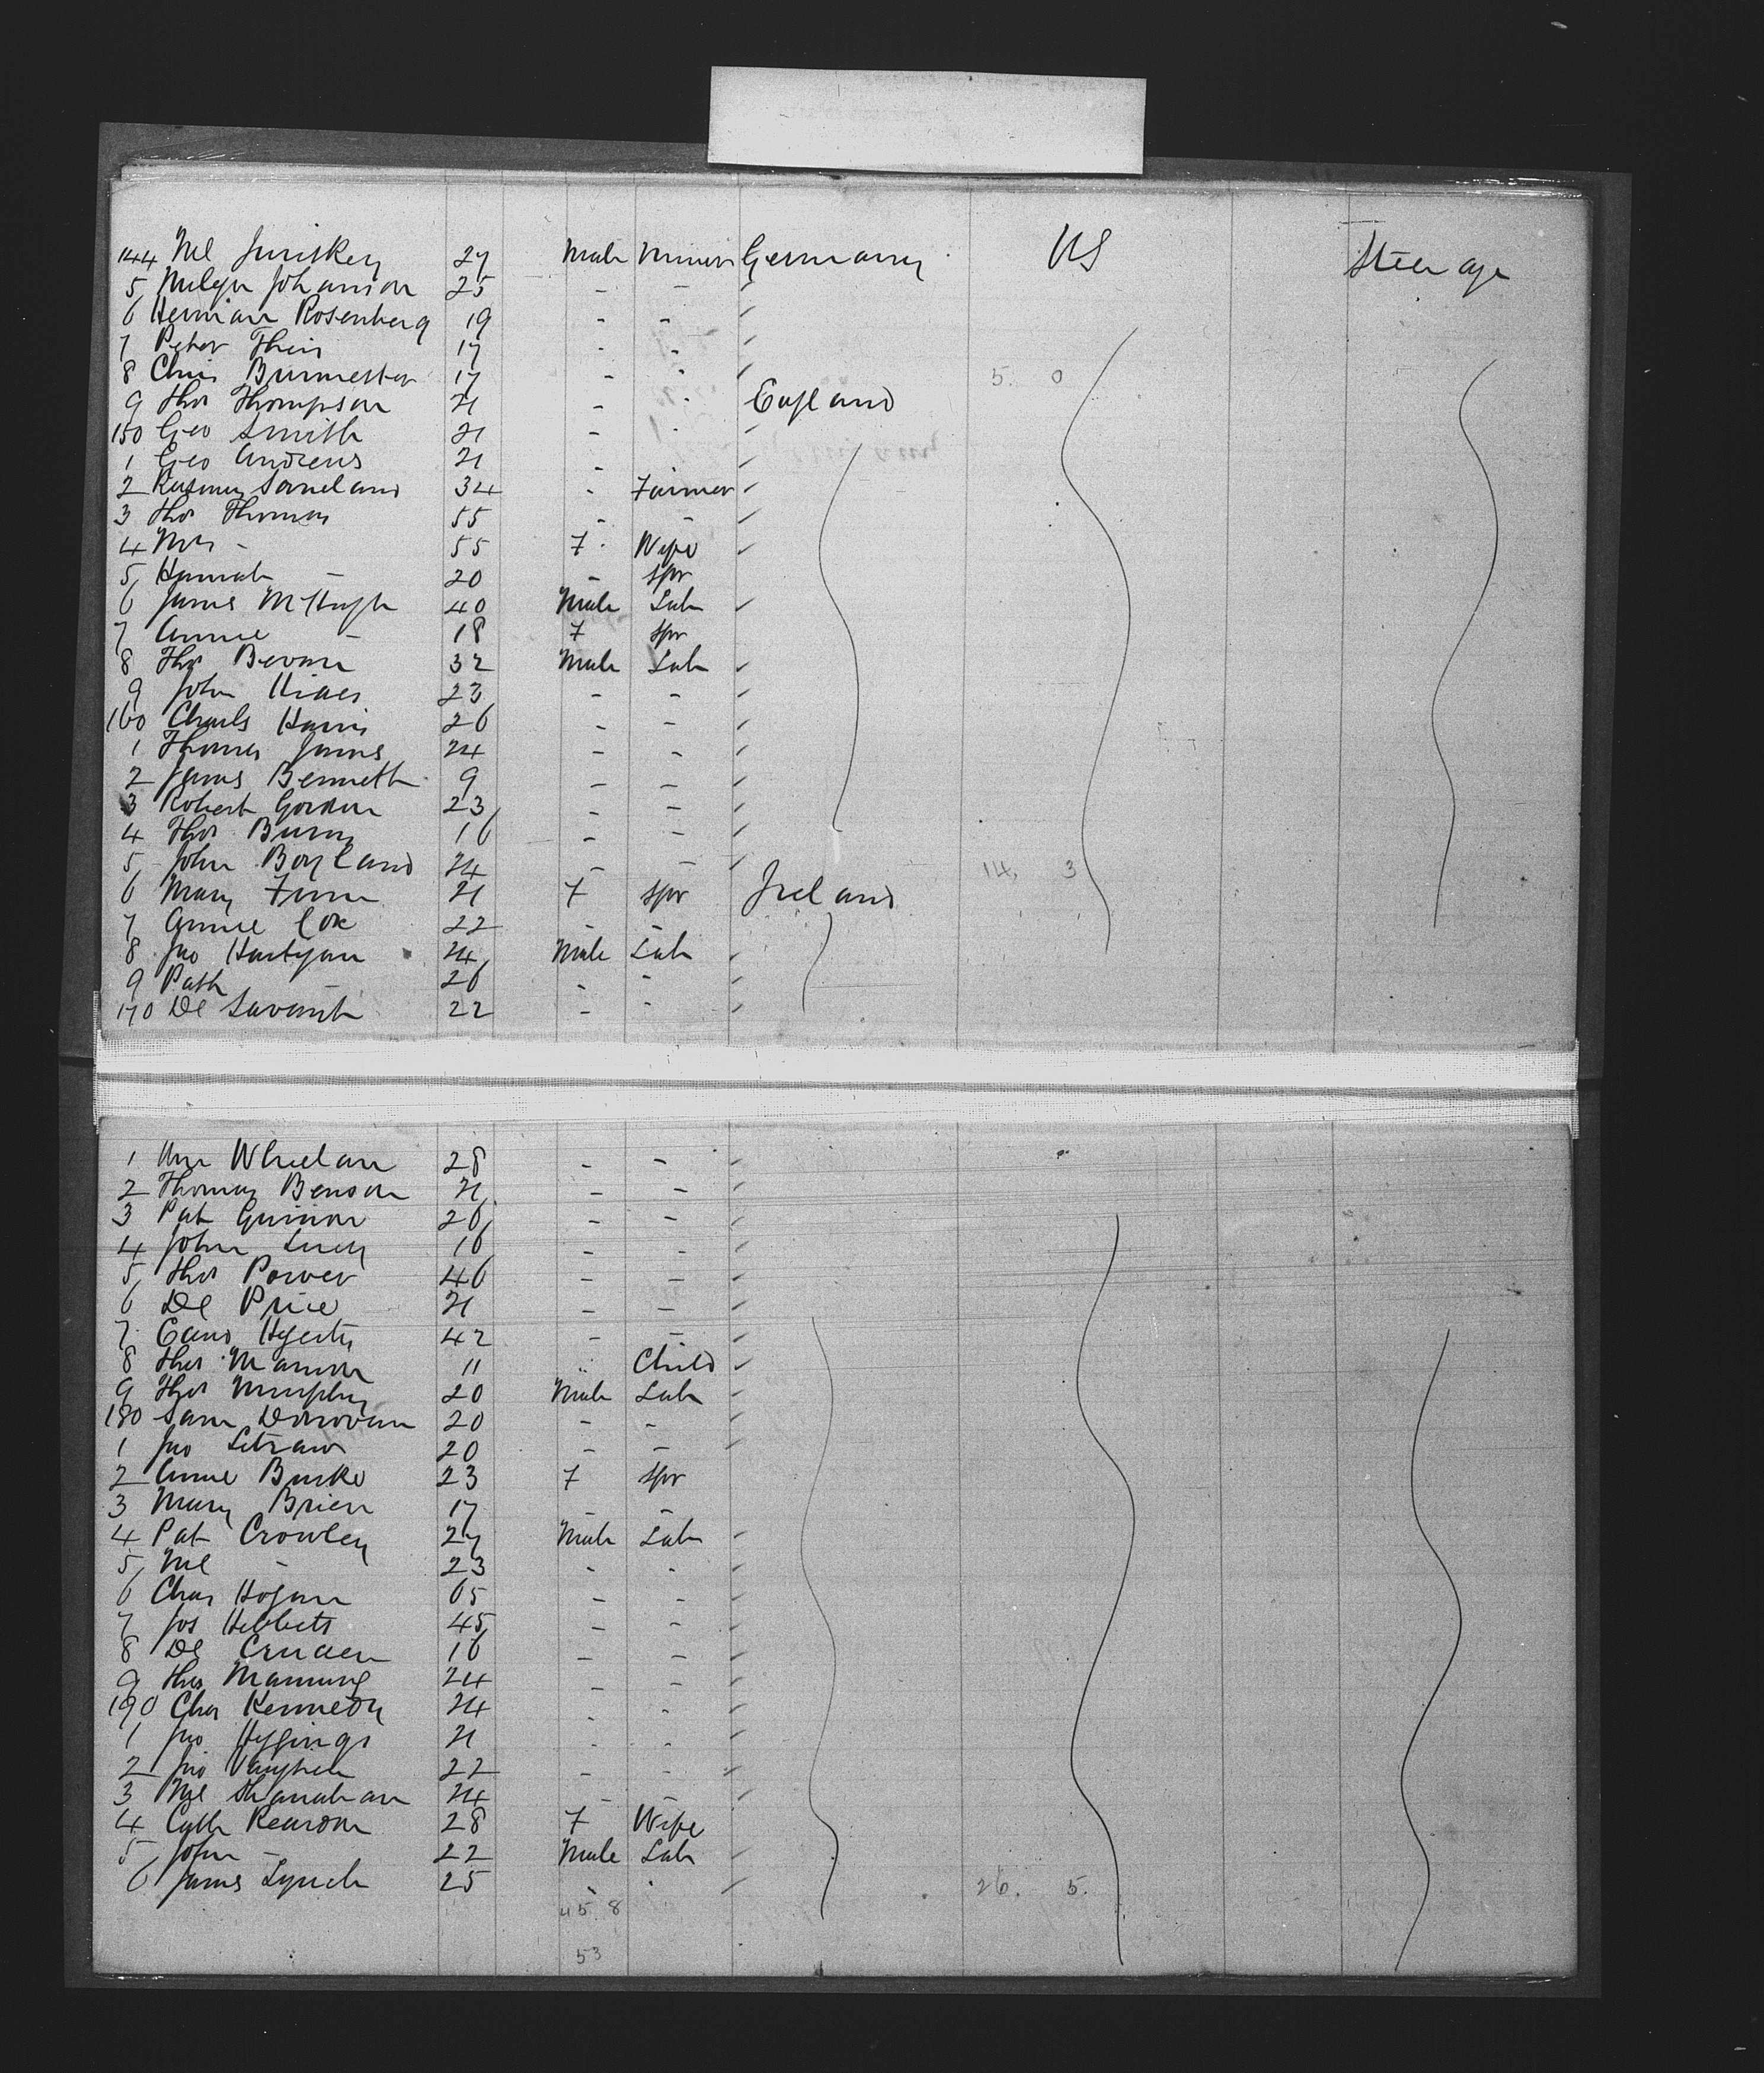 144 Ml Juriskey 27 Male Miner Germany US Steerage
5 Johanson 25 - -
6 Herman Rosenberg 19 - -
7 Peter Theis 17 - -
8 Chris Burmester 17 - - 5. 0
9 Thos Thompson 21 - - England
150 Geo Smith 21 - -
1 Geo Andrews 21 -
2 34 - Farmer
3 Thos Thomas 55 - -
4 Mrs - 55 F Wife
5 Hannah - 20 - Spr
6 James McHugh 40 Male Lab
7 Annie - 18 F Spr
8 Thos Bevan 32 Male Lab
9 John 23 - -
160 Charls Harris 26 - -
1 Thomas James 24 - -
2 James Bennett 9 - -
3 Robert Gordon 23 - -
4 Thos Burns 16 - -
5 John Boyland 24 - - 14. 3
6 Mary Finn 21 F Spr Ireland
7 Annie Cox 22 - -
8 Jno Hartigan 24 Male Lab
9 Patk - 26 - -
170 Dl 22 - -
1 Wm Whelan 28 - -
2 Thomas Benson 21 - -
3 Pat 26 - -
4 John Lucy 16 - -
5 Thos Power 46 - -
6 Dl Price 21 - -
7 42 - -
8 Thos Mannon 11 " Child
9 Thos Murphy 20 Male Lab
180 Sam Donovan 20 - -
1 Jno 20 - -
2 Annie Burke 23 F Spr
3 Mary Brien 17 - -
4 Pat Crowley 27 Male Lab
5 Ml - 23 - -
6 Chas Hogan 65 - -
7 Jos Hibbets 45 - -
8 Dl 16 - -
9 Thos Manning 24 - -
190 Chas Kennedy 24 - -
1 Jno Higgings 21 - -
2 Jno Vaughan 22 - -
3 Ml Shanahan 24 - -
4 Cath Reardon 28 F Wife
5 John - 22 Male Lab
6 James Lynch 25 - - 26. 5.
45 8
53